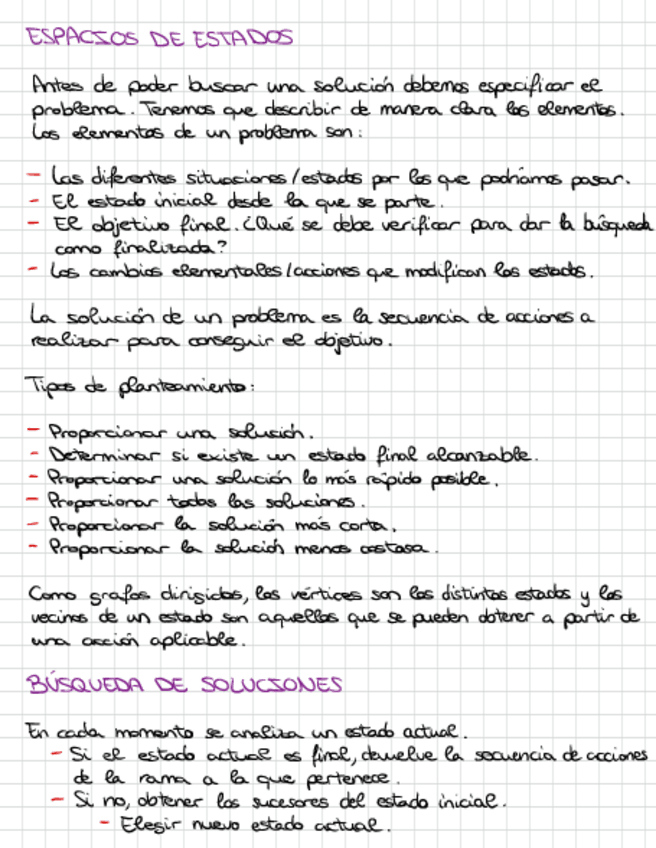 ESPACIOS DE ESTADOS
Antes de poder buscar una solución debemos especificar el
problema. Tenemos que describir de manera clara los elementos.
Los elementos de un problema son:
- Las diferentes situaciones/estados por los que podríamos pasar.
- El estado inicial desde la que se parte.
- El objetivo final. ¿Qué se debe verificar para dar la búsqueda
como finalizada?
- Los cambios elementales/acciones que modifican los estados.
La solución de un problema es la secuencia de acciones a
realizar para conseguir el objetivo.
Tipos de planteamiento:
- Proporcionar una solución.
- Determinar si existe un estado final alcanzable.
- Proporcionar una solución lo más rápido posible.
- Proporcionar todas las soluciones.
- Proporcionar la solución más corta.
- Proporcionar la solución menos costosa.
Como grafos dirigidos, los vértices son los distintos estados y los
vecinos de un estado son aquellos que se pueden obtener a partir de
una acción aplicable.
BÚSQUEDA DE SOLUCIONES
En cada momento se analiza un estado actual.
- Si el estado actual es final, devuelve la secuencia de acciones
de la rama a la que pertenece.
- Si no, obtener los sucesores del estado inicial.
- Elegir nuevo estado actual.